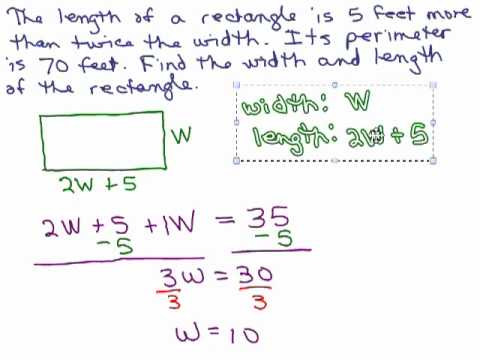 The length of a rectangle is 5 feet more
than twice the width. Its perimeter
is 70 feet. Find the width and length
of the rectangle.
width: W
length: 2W + 5
W
2W + 5
2W + 5 + 1W = 35
- 5 - 5
3W = 30
3 3
W = 10